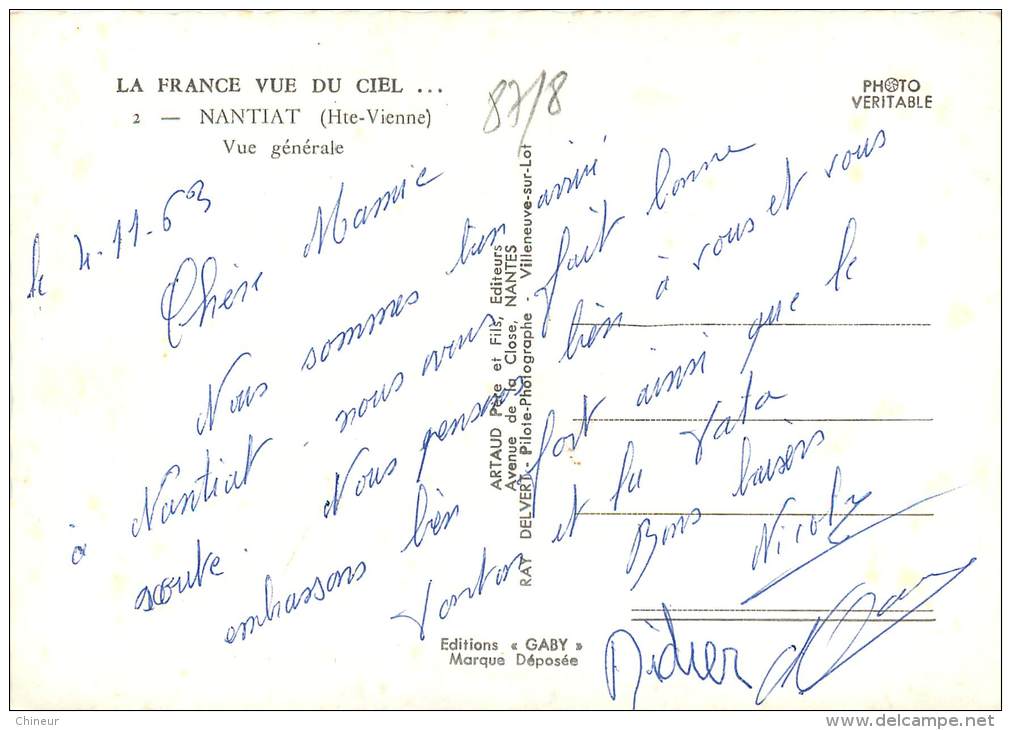 LA FRANCE VUE DU CIEL ...
2 — NANTIAT (Hte-Vienne)
Vue générale
87/8
PHOTO
VERITABLE
le 4-11-63
Chère Mamie
Nous sommes bien arrivé
à Nantiat nous avons fait bonne
route. Nous pensons bien à vous et vous
embrassons bien fort ainsi que le
Tonton et la Tata
Bons baisers
Didier
ARTAUD Père et Fils, Editeurs
Avenue de la Close, NANTES
RAY DELVERT - Pilote-Photographe - Villeneuve-sur-Lot
Editions « GABY »
Marque Déposée
Chineur
delcampe.net